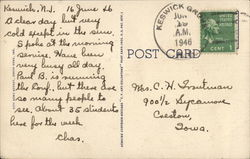 Keswick, N.J. 16 June 46
A clear day but very
cold except in the sun.
Spoke at the morning
service. Have been
very busy all day.
Paul B. is running
the Conf. but there are
so many people to
see. About 35 students
here for the week
Chas.
POST CARD
KESWICK GROVE
JUN
A.M.
1946
1 CENT
Mrs. C. H. Troutman
900½ Sycamore
Creston,
Iowa.